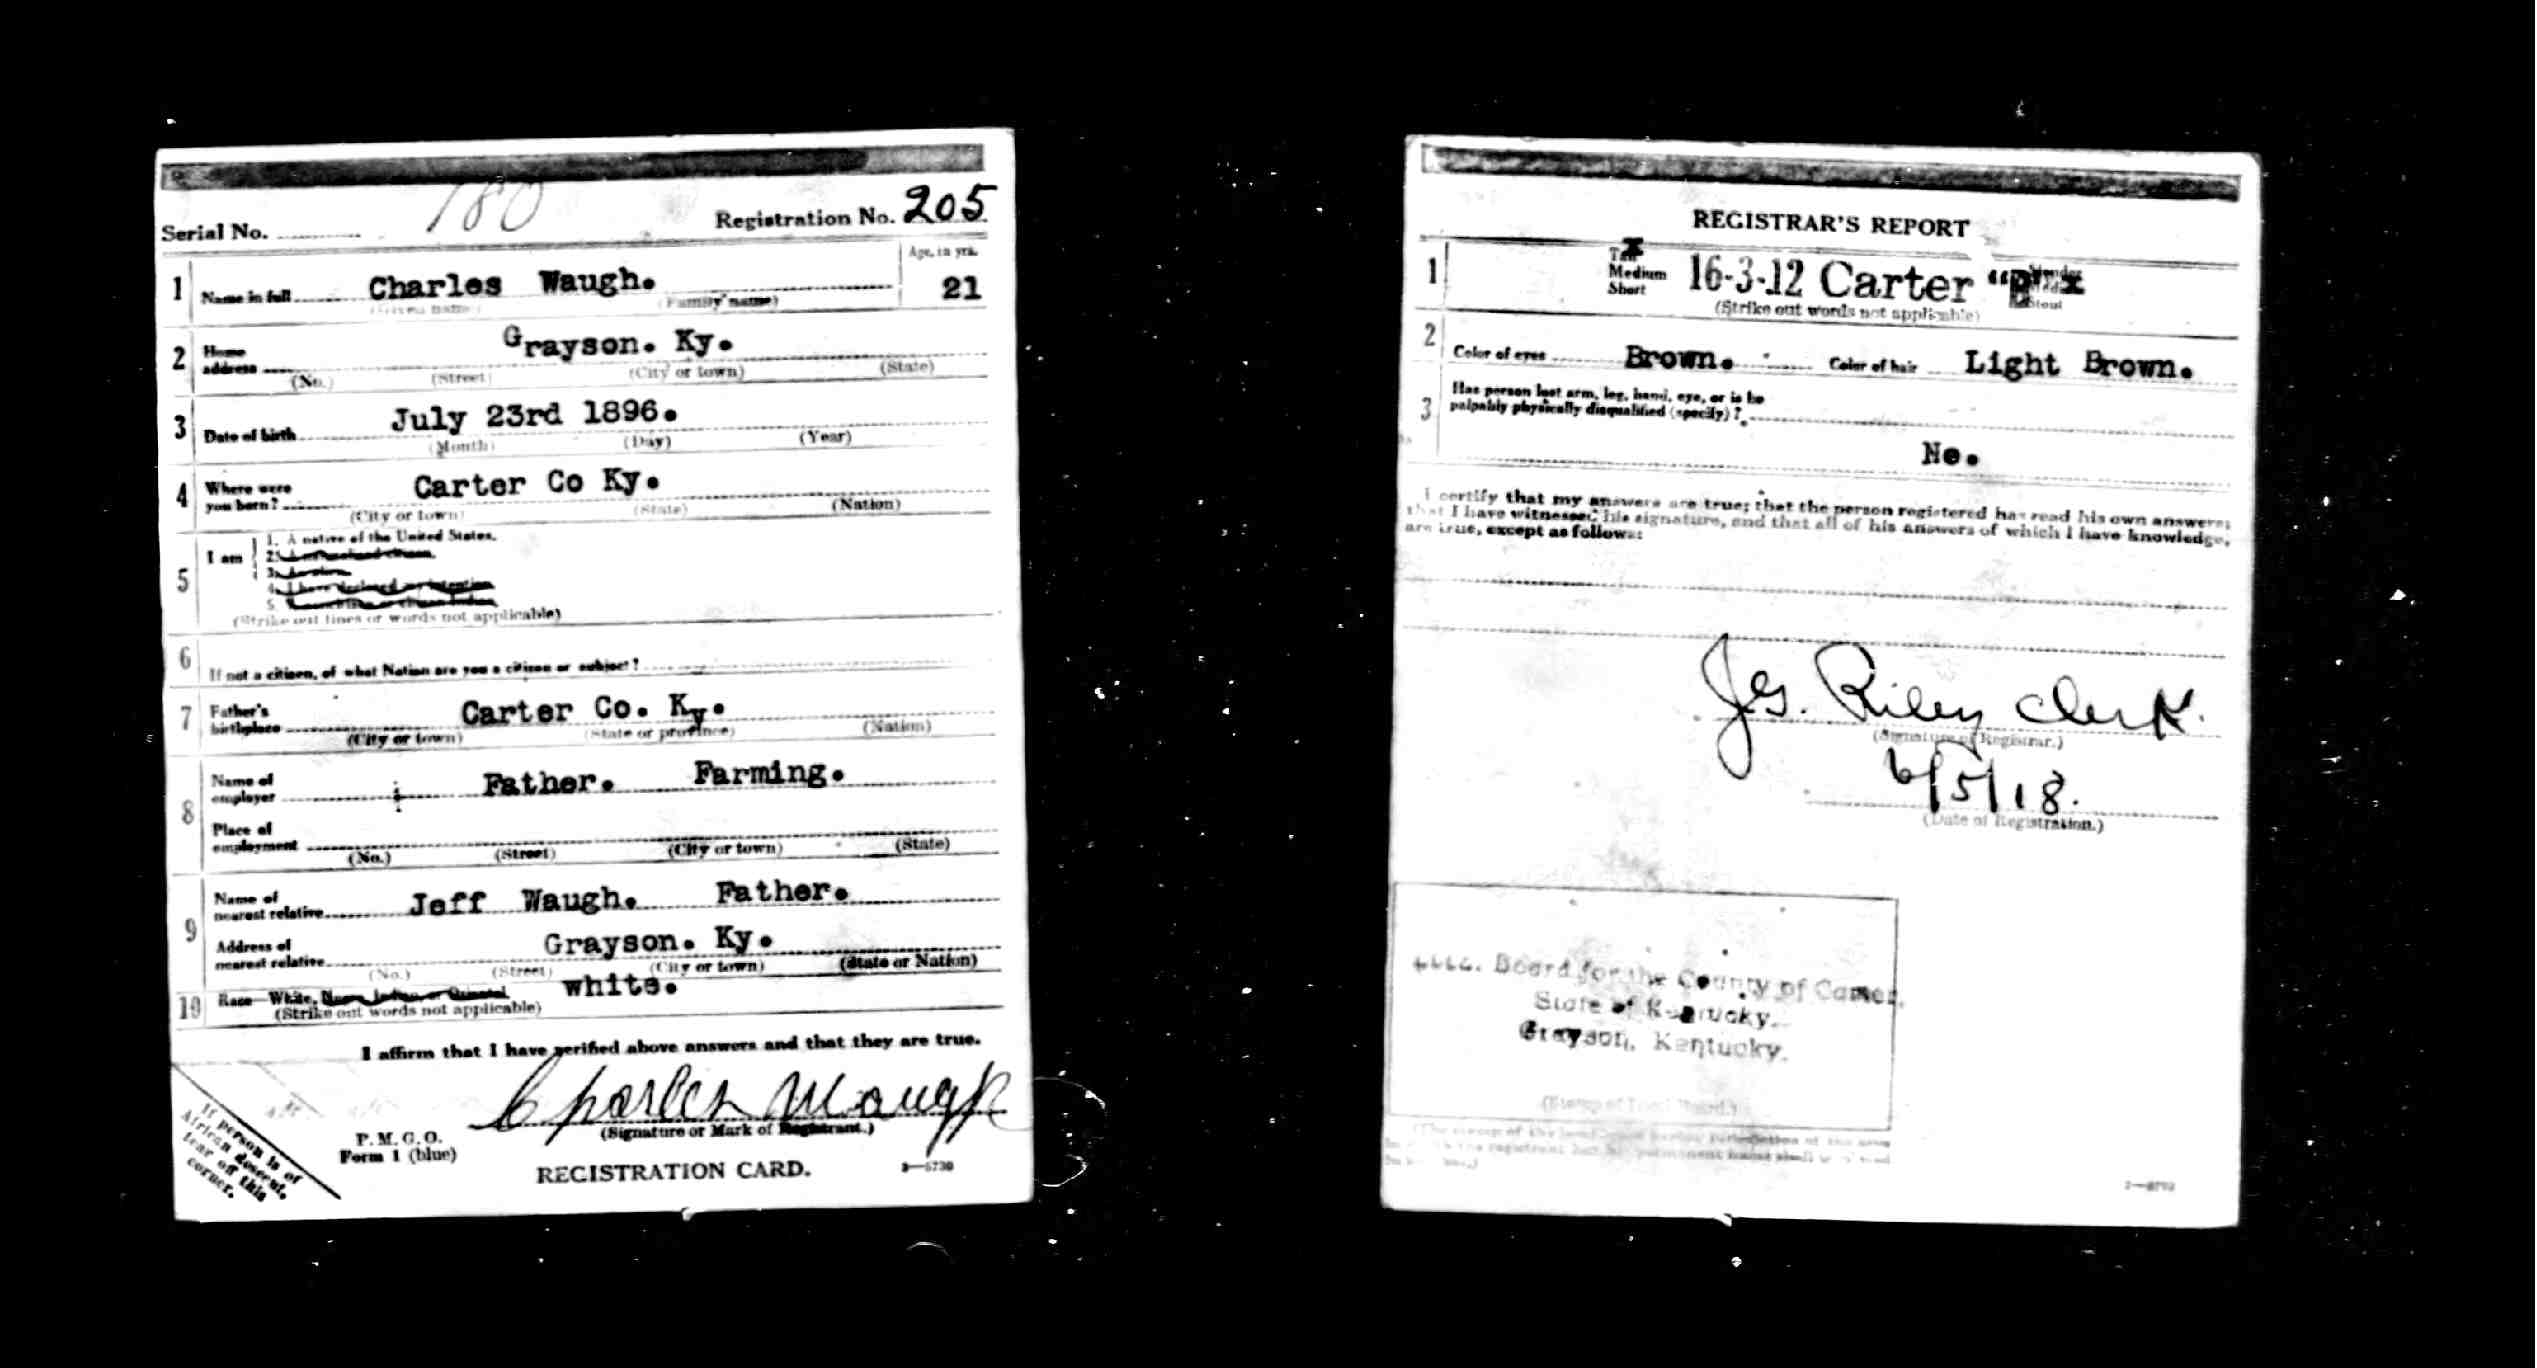 Serial No. 180 Registration No. 205
Age, in yrs.
1 Name in full Charles Waugh. 21
(Given name) (Family name)
2 Home address Grayson. Ky.
(No.) (Street) (City or town) (State)
3 Date of birth July 23rd 1896.
(Month) (Day) (Year)
4 Where were you born? Carter Co Ky.
(City or town) (State) (Nation)
5 I am 1. A native of the United States.
2. A naturalized citizen.
3. An alien.
4. I have declared my intention
5.
(Strike out lines or words not applicable)
6 If not a citizen, of what Nation are you a citizen or subject?
7 Father's birthplace Carter Co. Ky.
(City or town) (State or province) (Nation)
8 Name of employer Father. Farming.
Place of employment
(No.) (Street) (City or town) (State)
9 Name of nearest relative Jeff Waugh. Father.
Address of nearest relative Grayson. Ky.
(No.) (Street) (City or town) (State or Nation)
10 Race—White, Negro, Indian, or Oriental white.
(Strike out words not applicable)
I affirm that I have verified above answers and that they are true.
Charles Waugh
(Signature or Mark of Registrant.)
P. M. G. O.
Form 1 (blue)
REGISTRATION CARD.
3—5730
If person is of
African descent,
tear off this
corner.
REGISTRAR'S REPORT
1 Tall x
Medium 16-3-12 Carter "B" x
Short Slender Stout
(Strike out words not applicable)
2 Color of eyes Brown. Color of hair Light Brown.
3 Has person lost arm, leg, hand, eye, or is he
palpably physically disqualified (specify)?
No.
I certify that my answers are true; that the person registered has read his own answers;
that I have witnessed his signature, and that all of his answers of which I have knowledge,
are true, except as follows:
J.G. Riley Clerk.
(Signature of Registrar.)
6/5/18.
(Date of Registration.)
Board for the County of Carter,
State of Kentucky.
Grayson, Kentucky.
(Stamp of Local Board.)